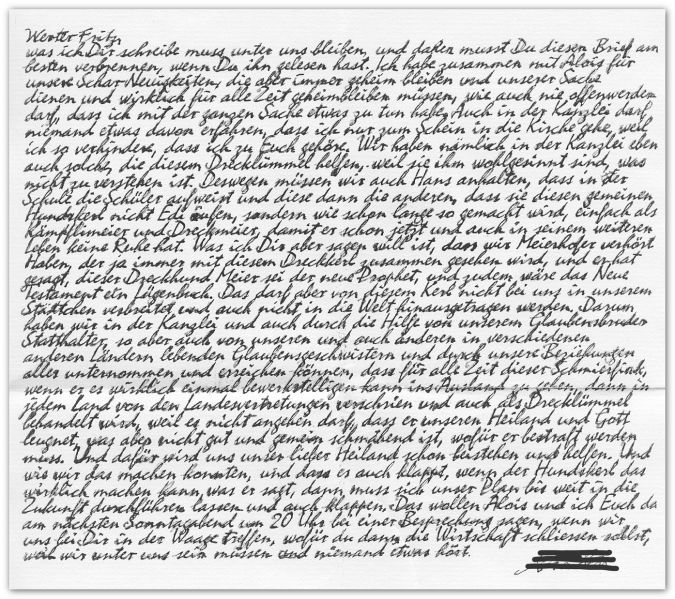 Werter Fritz
was ich Dir schreibe muss unter uns bleiben, und daher musst Du diesen Brief am
besten verbrennen, wenn Du ihn gelesen hast. Ich habe zusammen mit Alois für
unsere Schar Neuigkeiten, die aber immer geheim bleiben und unserer Sache
dienen und wirklich für alle Zeit geheimbleiben müssen, wie auch nie offenwerdem
darf, dass ich mit der ganzen Sache etwas zu tun habe. Auch in der Kanzlei darf
niemand etwas davon erfahren, dass ich nur zum Schein in die Kirche gehe, weil
ich so verhindere, dass ich zu Euch gehöre. Wir haben nämlich in der Kanzlei eben
auch solche, die diesem Drecklümmel helfen, weil sie ihm wohlgesinnt sind, was
nicht zu verstehen ist. Deswegen müssen wir auch Hans anhalten, dass in der
Schule die Schüler aufweist und diese dann die anderen, dass sie diesen gemeinen
Hundskerl nicht Edi rufen, sondern wie schon lange so gemacht wird, einfach als
Kämpflimeier und Dreckmeier, damit er schon jetzt und auch in seinem weiteren
Leben keine Ruhe hat. Was ich Dir aber sagen will ist, dass wir Meierhofer verhört
Haben, der ja immer mit diesem Dreckkerl zusammen gesehen wird, und er hat
gesagt, dieser Dreckhund Meier sei der neue Prophet, und zudem wäre das Neue
Testament ein Lügenbuch. Das darf aber von diesem Kerl nicht bei uns in unserem
Stättchen verbreitet und auch nicht in die Welt hinausgetragen werden. Darum
haben wir in der Kanzlei und auch durch die Hilfe von unserem Glaubensbruder
Statthalter, so aber auch von unseren und auch anderen in verschiedenen
anderen Ländern lebenden Glaubensgeschwistern und durch unsere Beziehungen
alles unternommen und erreichen können, dass für alle Zeit dieser Schmierfink,
wenn er es wirklich einmal bewerkstelligen kann ins Ausland zu gehen, dann in
jedem Land von den Landesvertretungen verschrien und auch als Drecklümmel
behandelt wird, weil es nicht angehen darf, dass er unseren Heiland und Gott
leugnet, was aber nicht gut und gemein schmähend ist, wofür er bestraft werden
muss. Und dafür wird uns unser lieber Heiland schon beistehen und helfen. Und
wie wir das machen konnten, und dass es auch klappt, wenn der Hundskerl das
wirklich machen kann, was er sagt, dann muss sich unser Plan bis weit in die
Zukunft durchführen lassen und auch klappen. Das wollen Alois und ich Euch da
am nächsten Sonntagabend um 20 Uhr bei einer Besprechung sagen, wenn wir
uns bei Dir in der Waage treffen, wofür du dann die Wirtschaft schliessen sollst,
weil wir unter uns sein müssen und niemand etwas hört.